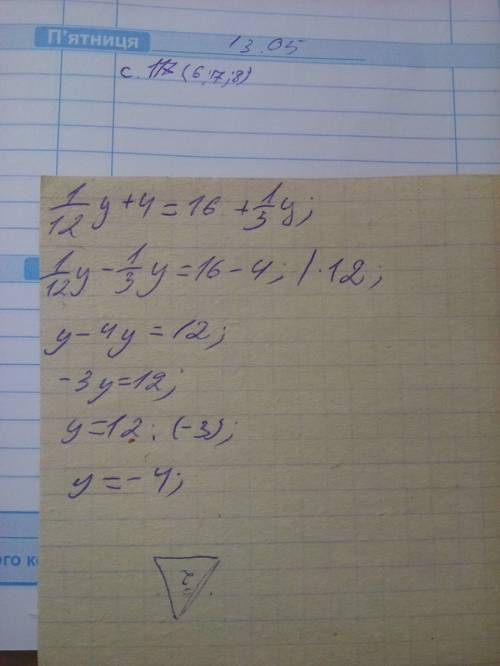 П'ятниця 13.05
с. 117 (6,7;8)
1/12 y + 4 = 16 + 1/3 y;
1/12 y - 1/3 y = 16 - 4; | · 12;
y - 4y = 12;
-3y = 12;
y = 12 : (-3);
y = -4;
ого к